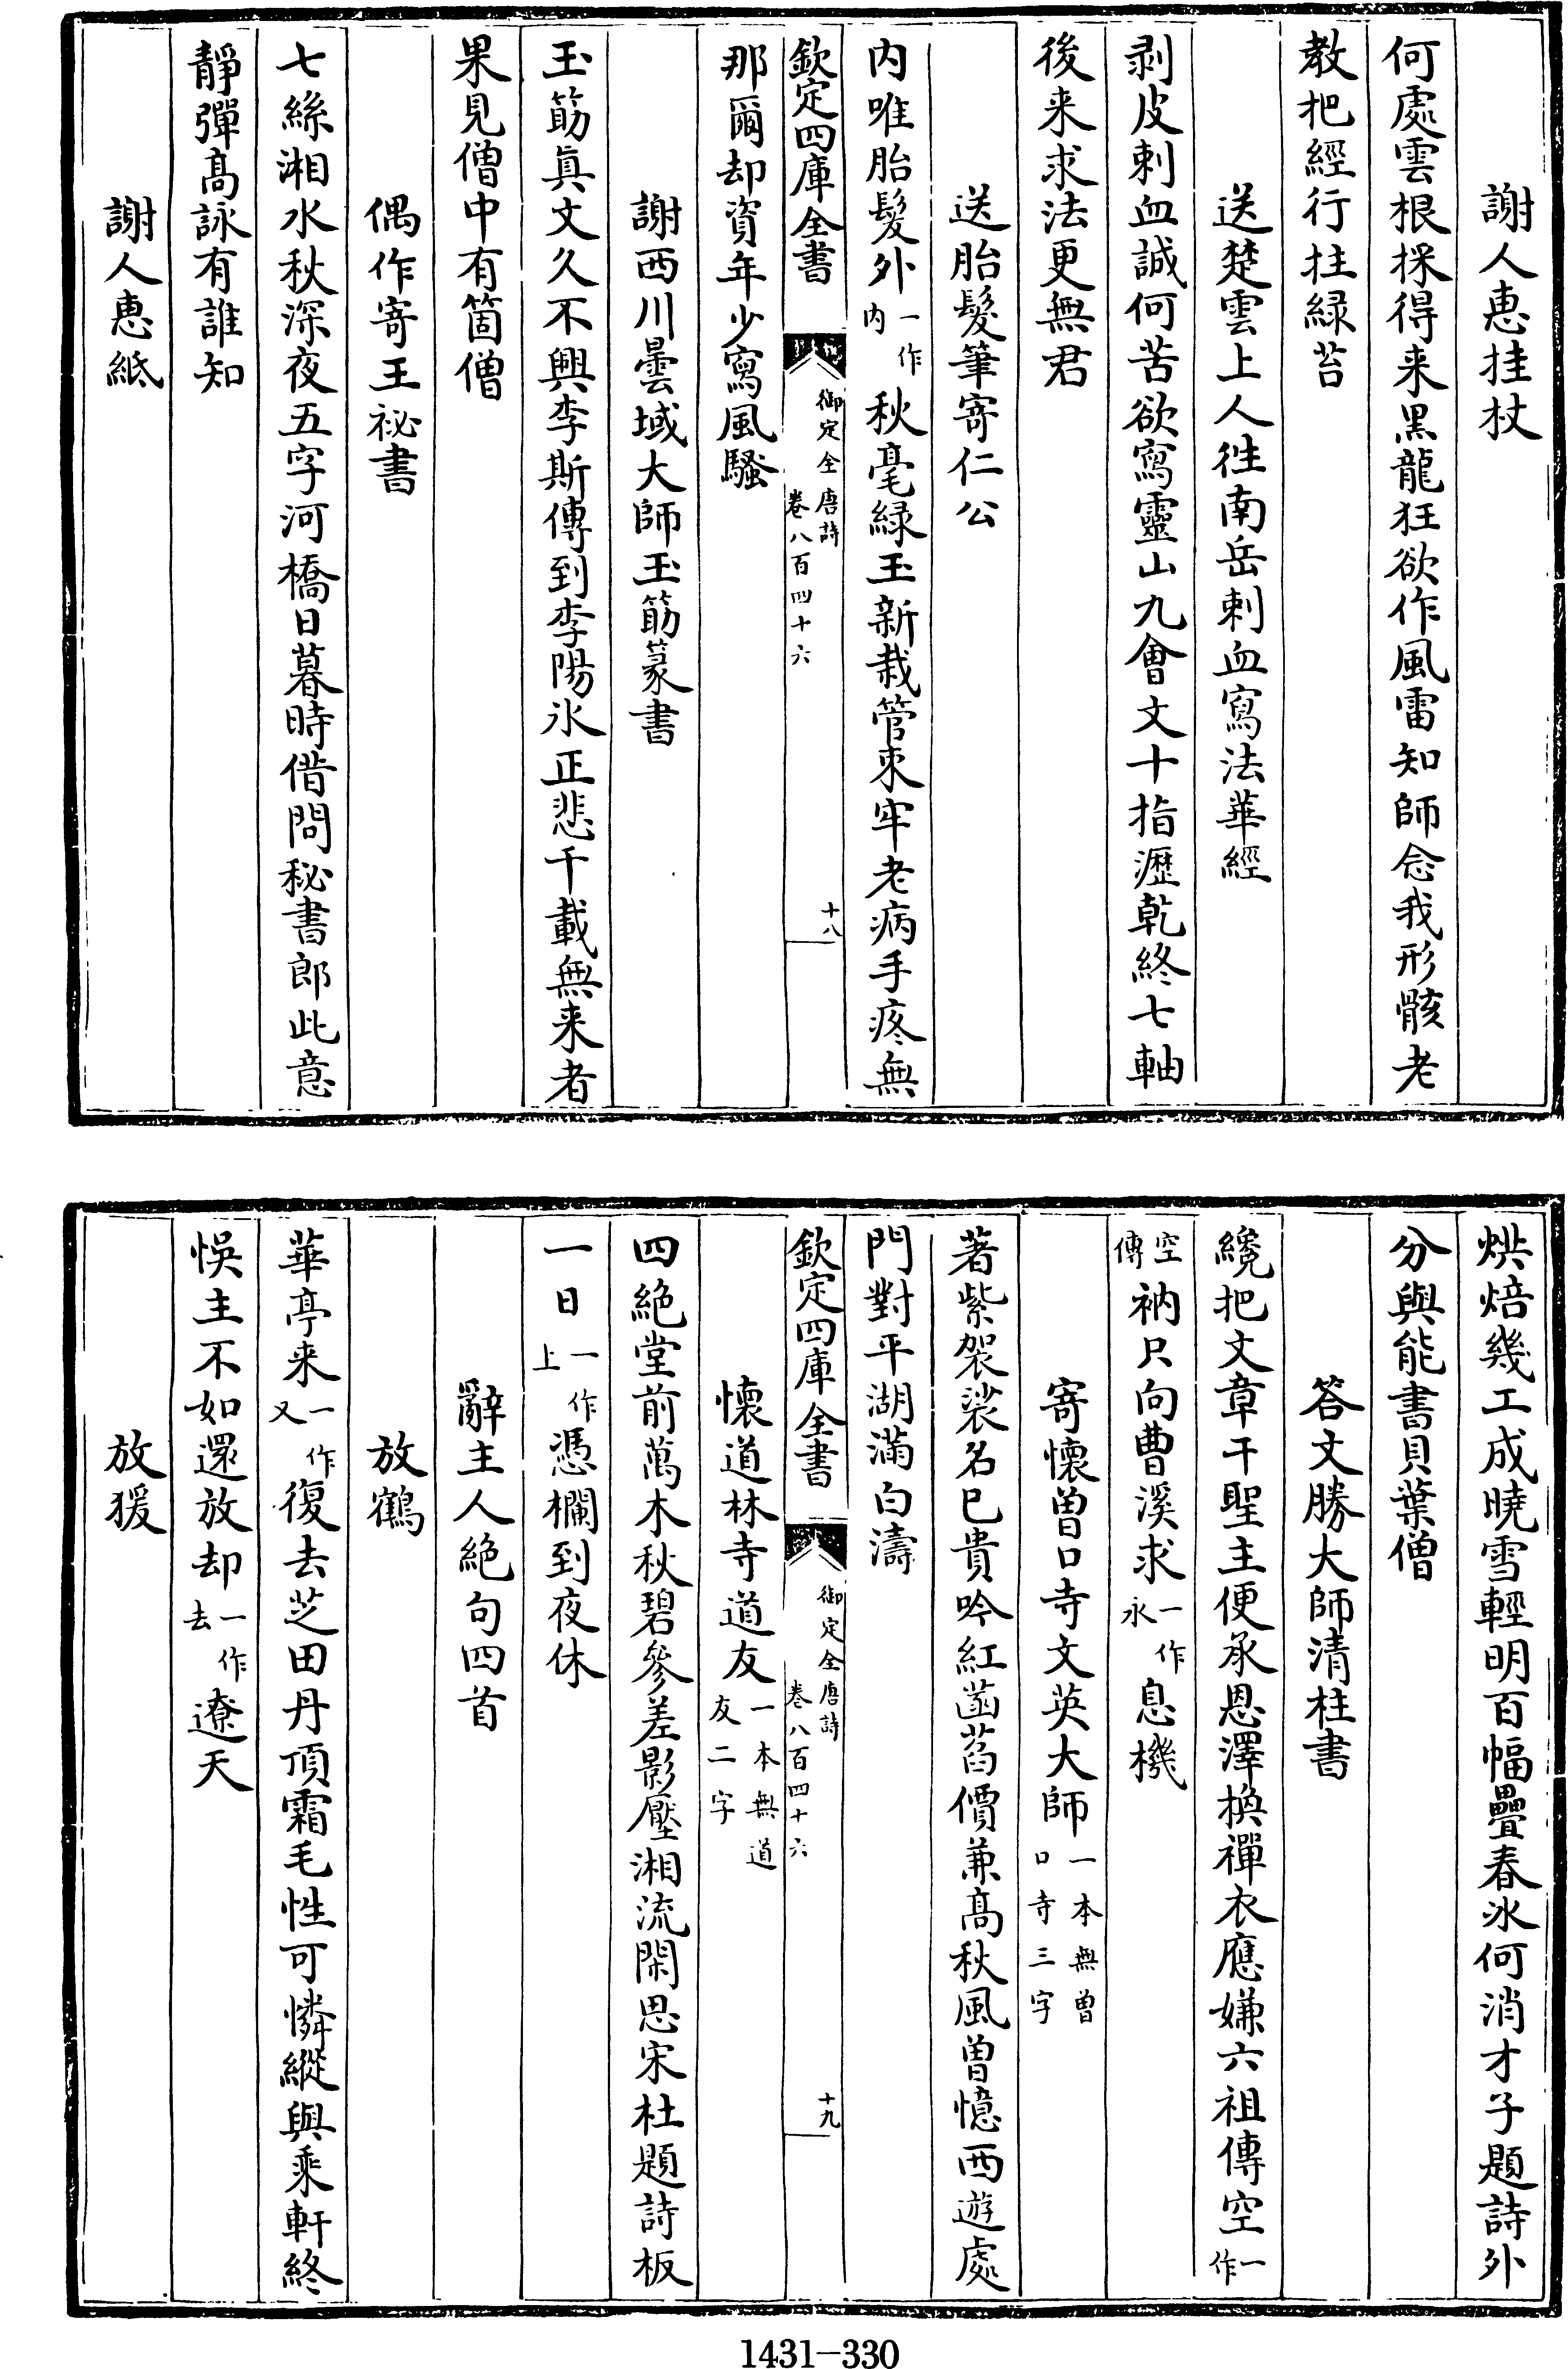 謝人惠拄杖
何處雲根採得来黑龍狂欲作風雷知師念我形骸老
教把經行拄緑苔
送楚雲上人徃南岳刺血寫法華經
剥皮刺血誠何苦欲寫靈山九會文十指瀝乾終七軸
後来求法更無君
送胎髮筆寄仁公
内唯胎髮外一作内秋毫緑玉新栽管束牢老病手疼無
欽定四庫全書 御定全唐詩 卷八百四十六 十八
那爾却資年少寫風騷
謝西川曇域大師玉筯篆書
玉筯真文久不興李斯傳到李陽氷正悲千載無来者
果見僧中有箇僧
偶作寄王祕書
七絲湘水秋深夜五字河橋日暮時借問秘書郎此意
靜彈高詠有誰知
謝人惠紙
烘焙幾工成曉雪輕明百幅疊春氷何消才子題詩外
分與能書貝葉僧
答文勝大師清柱書
纔把文章干聖主便承恩澤換禪衣應嫌六祖傳空一作
空傳衲只向曹溪求一作永息機
寄懷曾口寺文英大師一本無曾口寺三字
著紫袈裟名已貴吟紅菡萏價兼高秋風曾憶西遊處
門對平湖滿白濤
欽定四庫全書 御定全唐詩 卷八百四十六 十九
懷道林寺道友一本無道友二字
四絶堂前萬木秋碧參差影壓湘流閑思宋杜題詩板
一日一作上憑欄到夜休
辭主人絶句四首
放鶴
華亭来一作又復去芝田丹頂霜毛性可憐縱與乘軒終
悞主不如還放却一作去遼天
放猨
1431-330